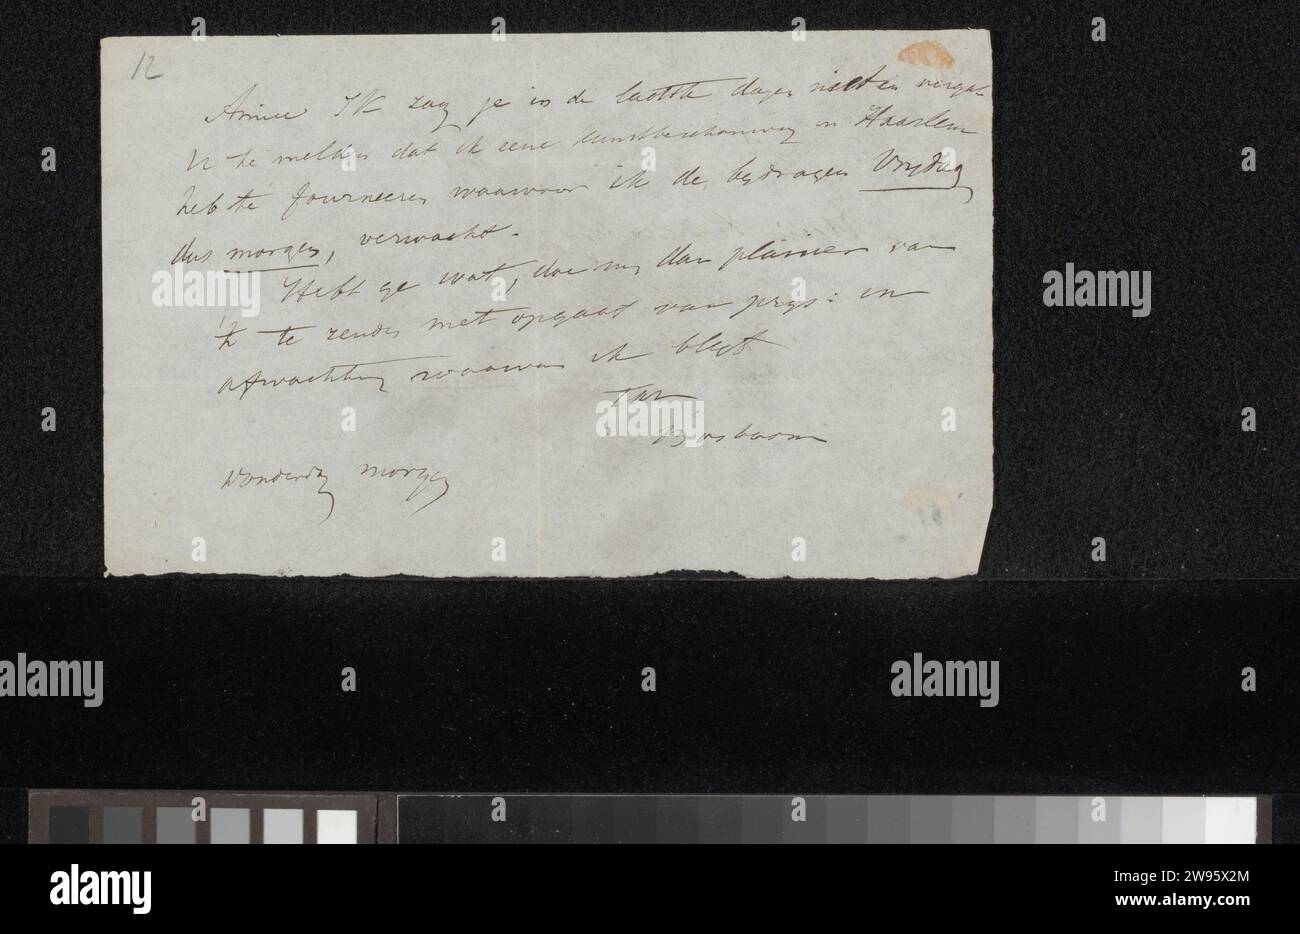 12
Amice Ik zag je in de laatste dagen niet en vergat
U te melden dat ik eene kunstbeschouwing in Haarlem
heb te fourneeren waarvoor ik de bijdragen Vrijdag
dus morgen, verwacht.
Hebt ge wat, doe mij dan plaisier van
't te zenden met opgaaf van prijs: in
afwachting waarvan ik blijf
Bosboom
Donderdag morgen
alamy
Image ID: 2W95X2M
www.alamy.com